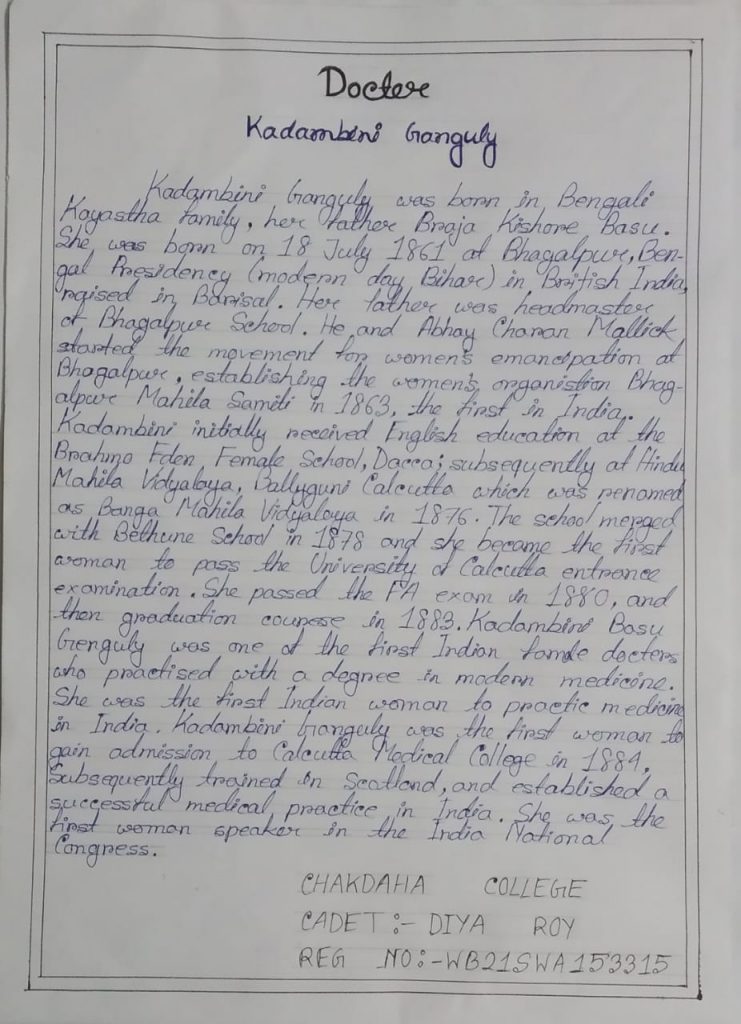 Docter
Kadambini Ganguly
Kadambini Ganguly was born in Bengali
Kayastha family, her father Braja Kishore Basu.
She was born on 18 July 1861 at Bhagalpur, Ben-
gal Presidency (modern day Bihar) in British India,
raised in Barisal. Her father was headmaster
of Bhagalpur School. He and Abhay Charan Mallick
started the movement for women's emancipation at
Bhagalpur, establishing the women's organistion Bhag-
alpur Mahila Samiti in 1863, the first in India.
Kadambini initially received English education at the
Brahmo Eden Female School, Dacca; subsequently at Hindu
Mahila Vidyalaya, Ballyguni Calcutta which was renamed
as Banga Mahila Vidyalaya in 1876. The school merged
with Bethune School in 1878 and she became the first
woman to pass the University of Calcutta entrance
examination. She passed the FA exam in 1880, and
then graduation courese in 1883. Kadambini Basu
Genguly was one of the first Indian female docters
who practised with a degree in modern medicine.
She was the first Indian woman to practic medicine
in India. Kadambini Ganguly was the first woman to
gain admission to Calcutta Medical College in 1884,
Subsequently trained in Scotland, and established a
successful medical practice in India. She was the
first woman speaker in the India National
Congress.
CHAKDAHA COLLEGE
CADET :- DIYA ROY
REG NO:-WB21SWA153315